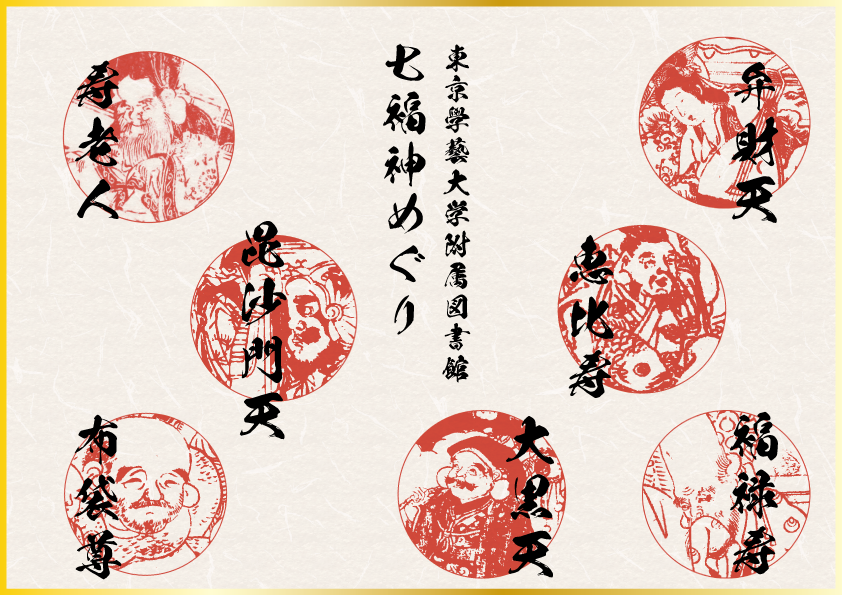 東京學藝大学附属図書館
七福神めぐり
弁財天
恵比寿
福禄寿
大黒天
毘沙門天
寿老人
布袋尊